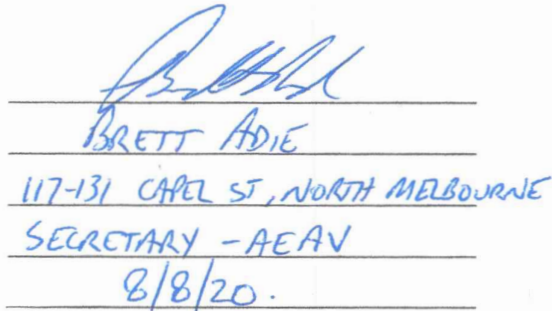 BRETT ADIE
117-131 CAPEL ST, NORTH MELBOURNE
SECRETARY - AEAV
8/8/20.